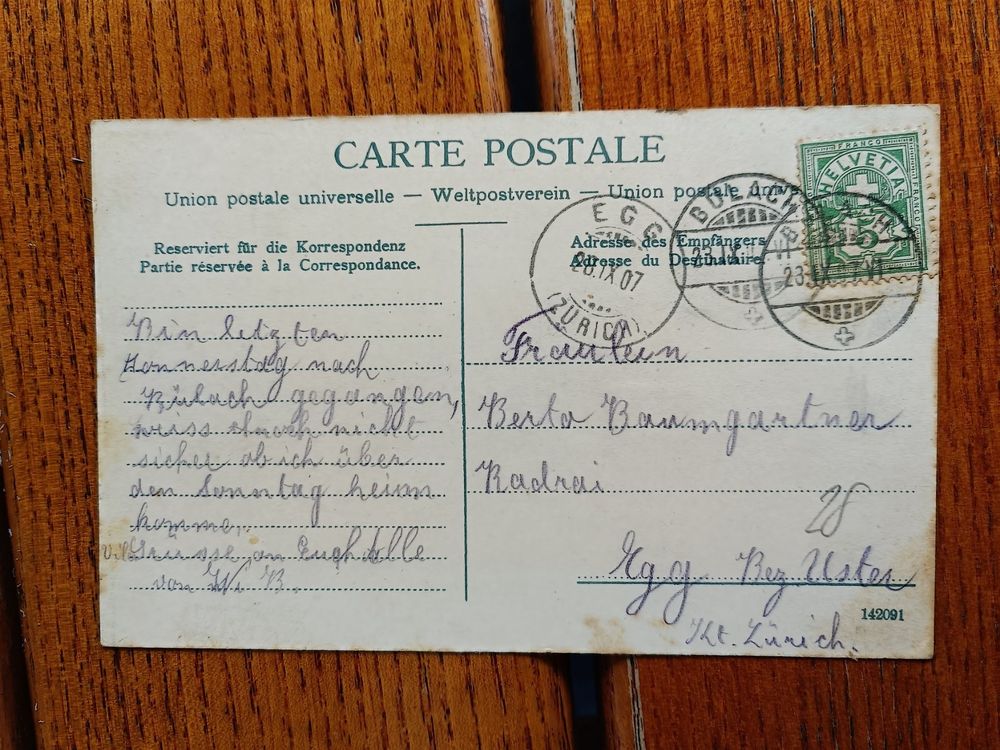 CARTE POSTALE
Union postale universelle — Weltpostverein — Union postale unive
Reserviert für die Korrespondenz
Partie réservée à la Correspondance.
Adresse des Empfängers
Adresse du Destinataire
FRANCO
HELVETIA
FRANCO
5
EGG
28.IX.07
(ZÜRICH)
BÜLACH
BÜLACH
Bin letzten
Donnerstag nach
Bülach gegangen,
weiss noch nicht
sicher ob ich über
den Sonntag heim
komme.
Grüsse an Euch Alle
von B.
Fräulein
Berta Baumgartner
Radrai
28
Egg Bez. Uster
Kt. Zürich.
142091